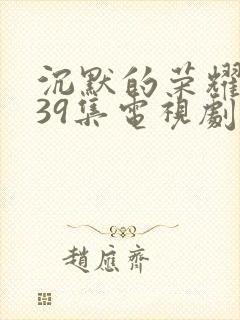 沉默的荣耀
39集電視劇
趙應齊